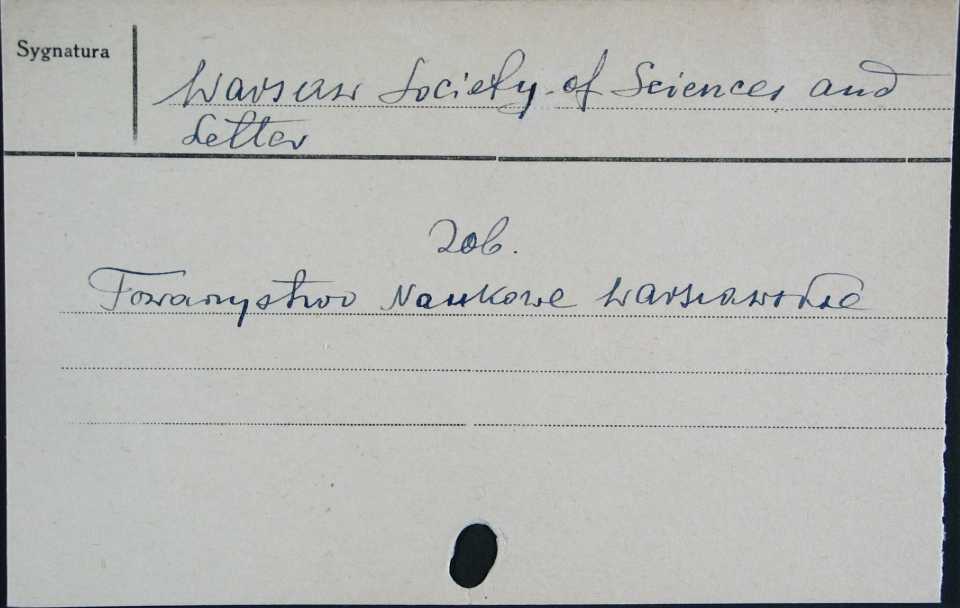 Sygnatura
Warsaw Society of Sciences and
Letter
Zob.
Towarzystwo Naukowe Warszawskie